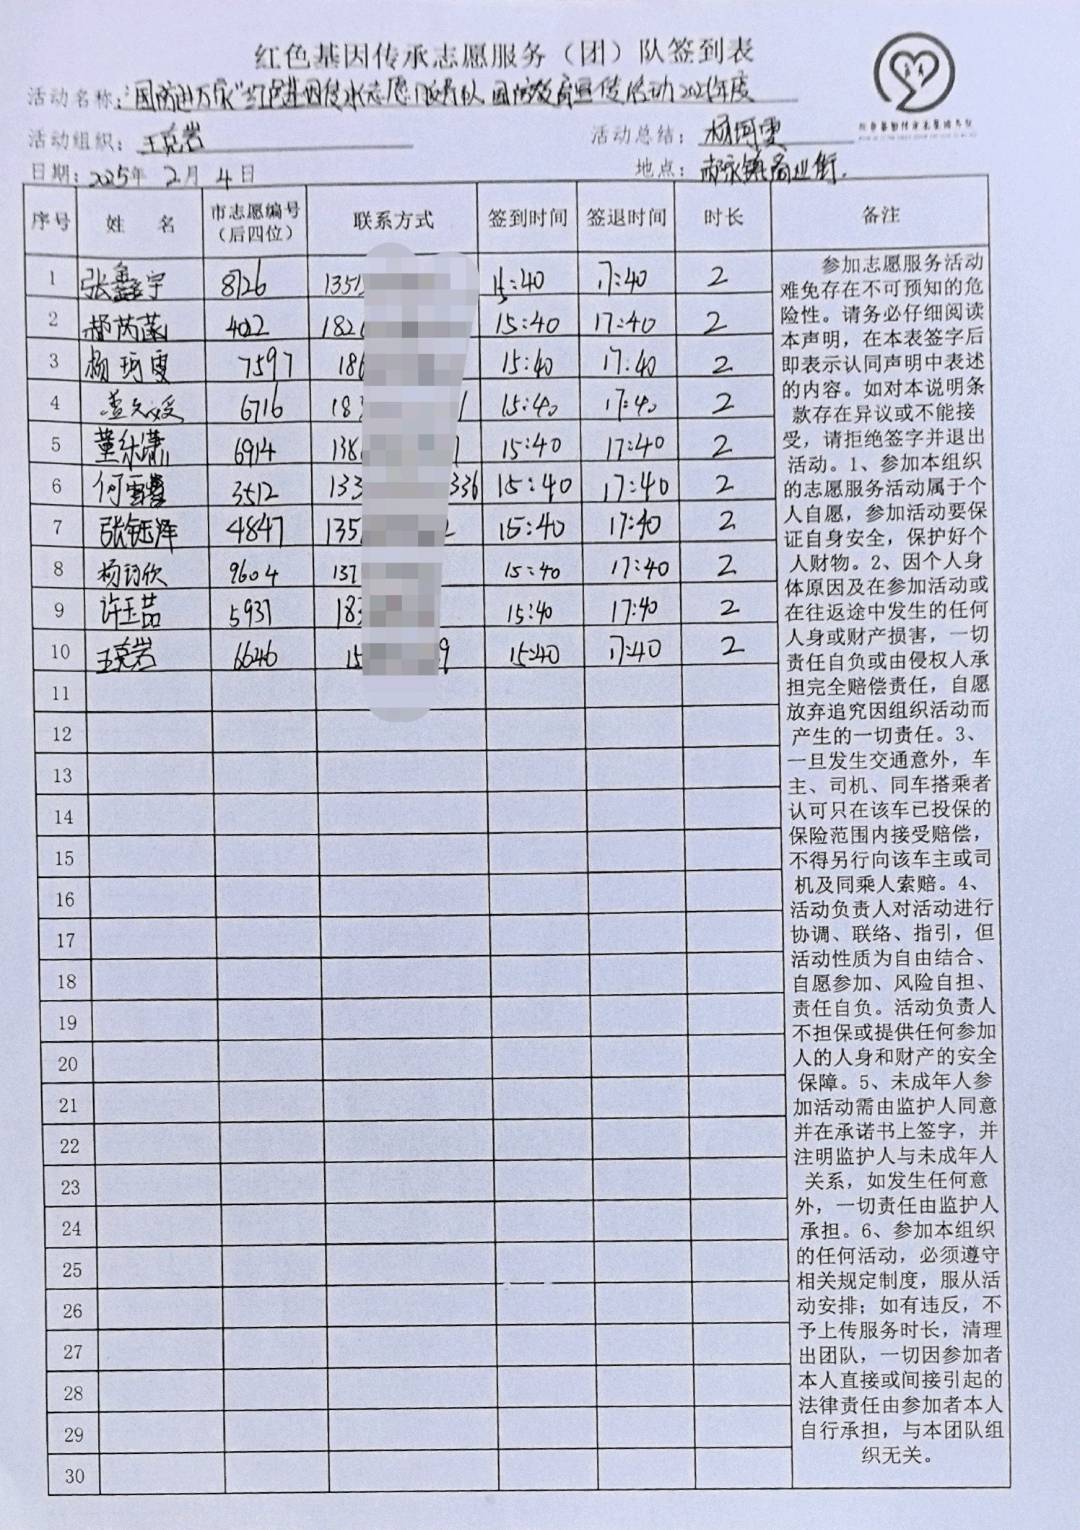 红色基因传承志愿服务（团）队签到表
活动名称：“国防进万家”红色基因传承志愿服务队国防教育宣传活动2025年度
活动组织：王克岩
活动总结：杨珂雯
日期：2025年 2月 4日
地点：郝家镇商业街.
序号 姓 名 市志愿编号（后四位） 联系方式 签到时间 签退时间 时长 备注
1 张鑫宇 8726 1351 15:40 17:40 2
2 4022 182 15:40 17:40 2
3 杨珂雯 7597 186 15:40 17:40 2
4 6716 183 15:40 17:40 2
5 6914 138 15:40 17:40 2
6 3512 133 336 15:40 17:40 2
7 张钰泽 4847 135 15:40 17:40 2
8 9604 137 15:40 17:40 2
9 许玉茹 5937 183 15:40 17:40 2
10 王克岩 6646 15 9 15:40 17:40 2
11
12
13
14
15
16
17
18
19
20
21
22
23
24
25
26
27
28
29
30
参加志愿服务活动
难免存在不可预知的危
险性。请务必仔细阅读
本声明，在本表签字后
即表示认同声明中表述
的内容。如对本说明条
款存在异议或不能接
受，请拒绝签字并退出
活动。1、参加本组织
的志愿服务活动属于个
人自愿，参加活动要保
证自身安全，保护好个
人财物。2、因个人身
体原因及在参加活动或
在往返途中发生的任何
人身或财产损害，一切
责任自负或由侵权人承
担完全赔偿责任，自愿
放弃追究因组织活动而
产生的一切责任。3、
一旦发生交通意外，车
主、司机、同车搭乘者
认可只在该车已投保的
保险范围内接受赔偿，
不得另行向该车主或司
机及同乘人索赔。4、
活动负责人对活动进行
协调、联络、指引，但
活动性质为自由结合、
自愿参加、风险自担、
责任自负。活动负责人
不担保或提供任何参加
人的人身和财产的安全
保障。5、未成年人参
加活动需由监护人同意
并在承诺书上签字，并
注明监护人与未成年人
关系，如发生任何意
外，一切责任由监护人
承担。6、参加本组织
的任何活动，必须遵守
相关规定制度，服从活
动安排；如有违反，不
予上传服务时长，清理
出团队，一切因参加者
本人直接或间接引起的
法律责任由参加者本人
自行承担，与本团队组
织无关。